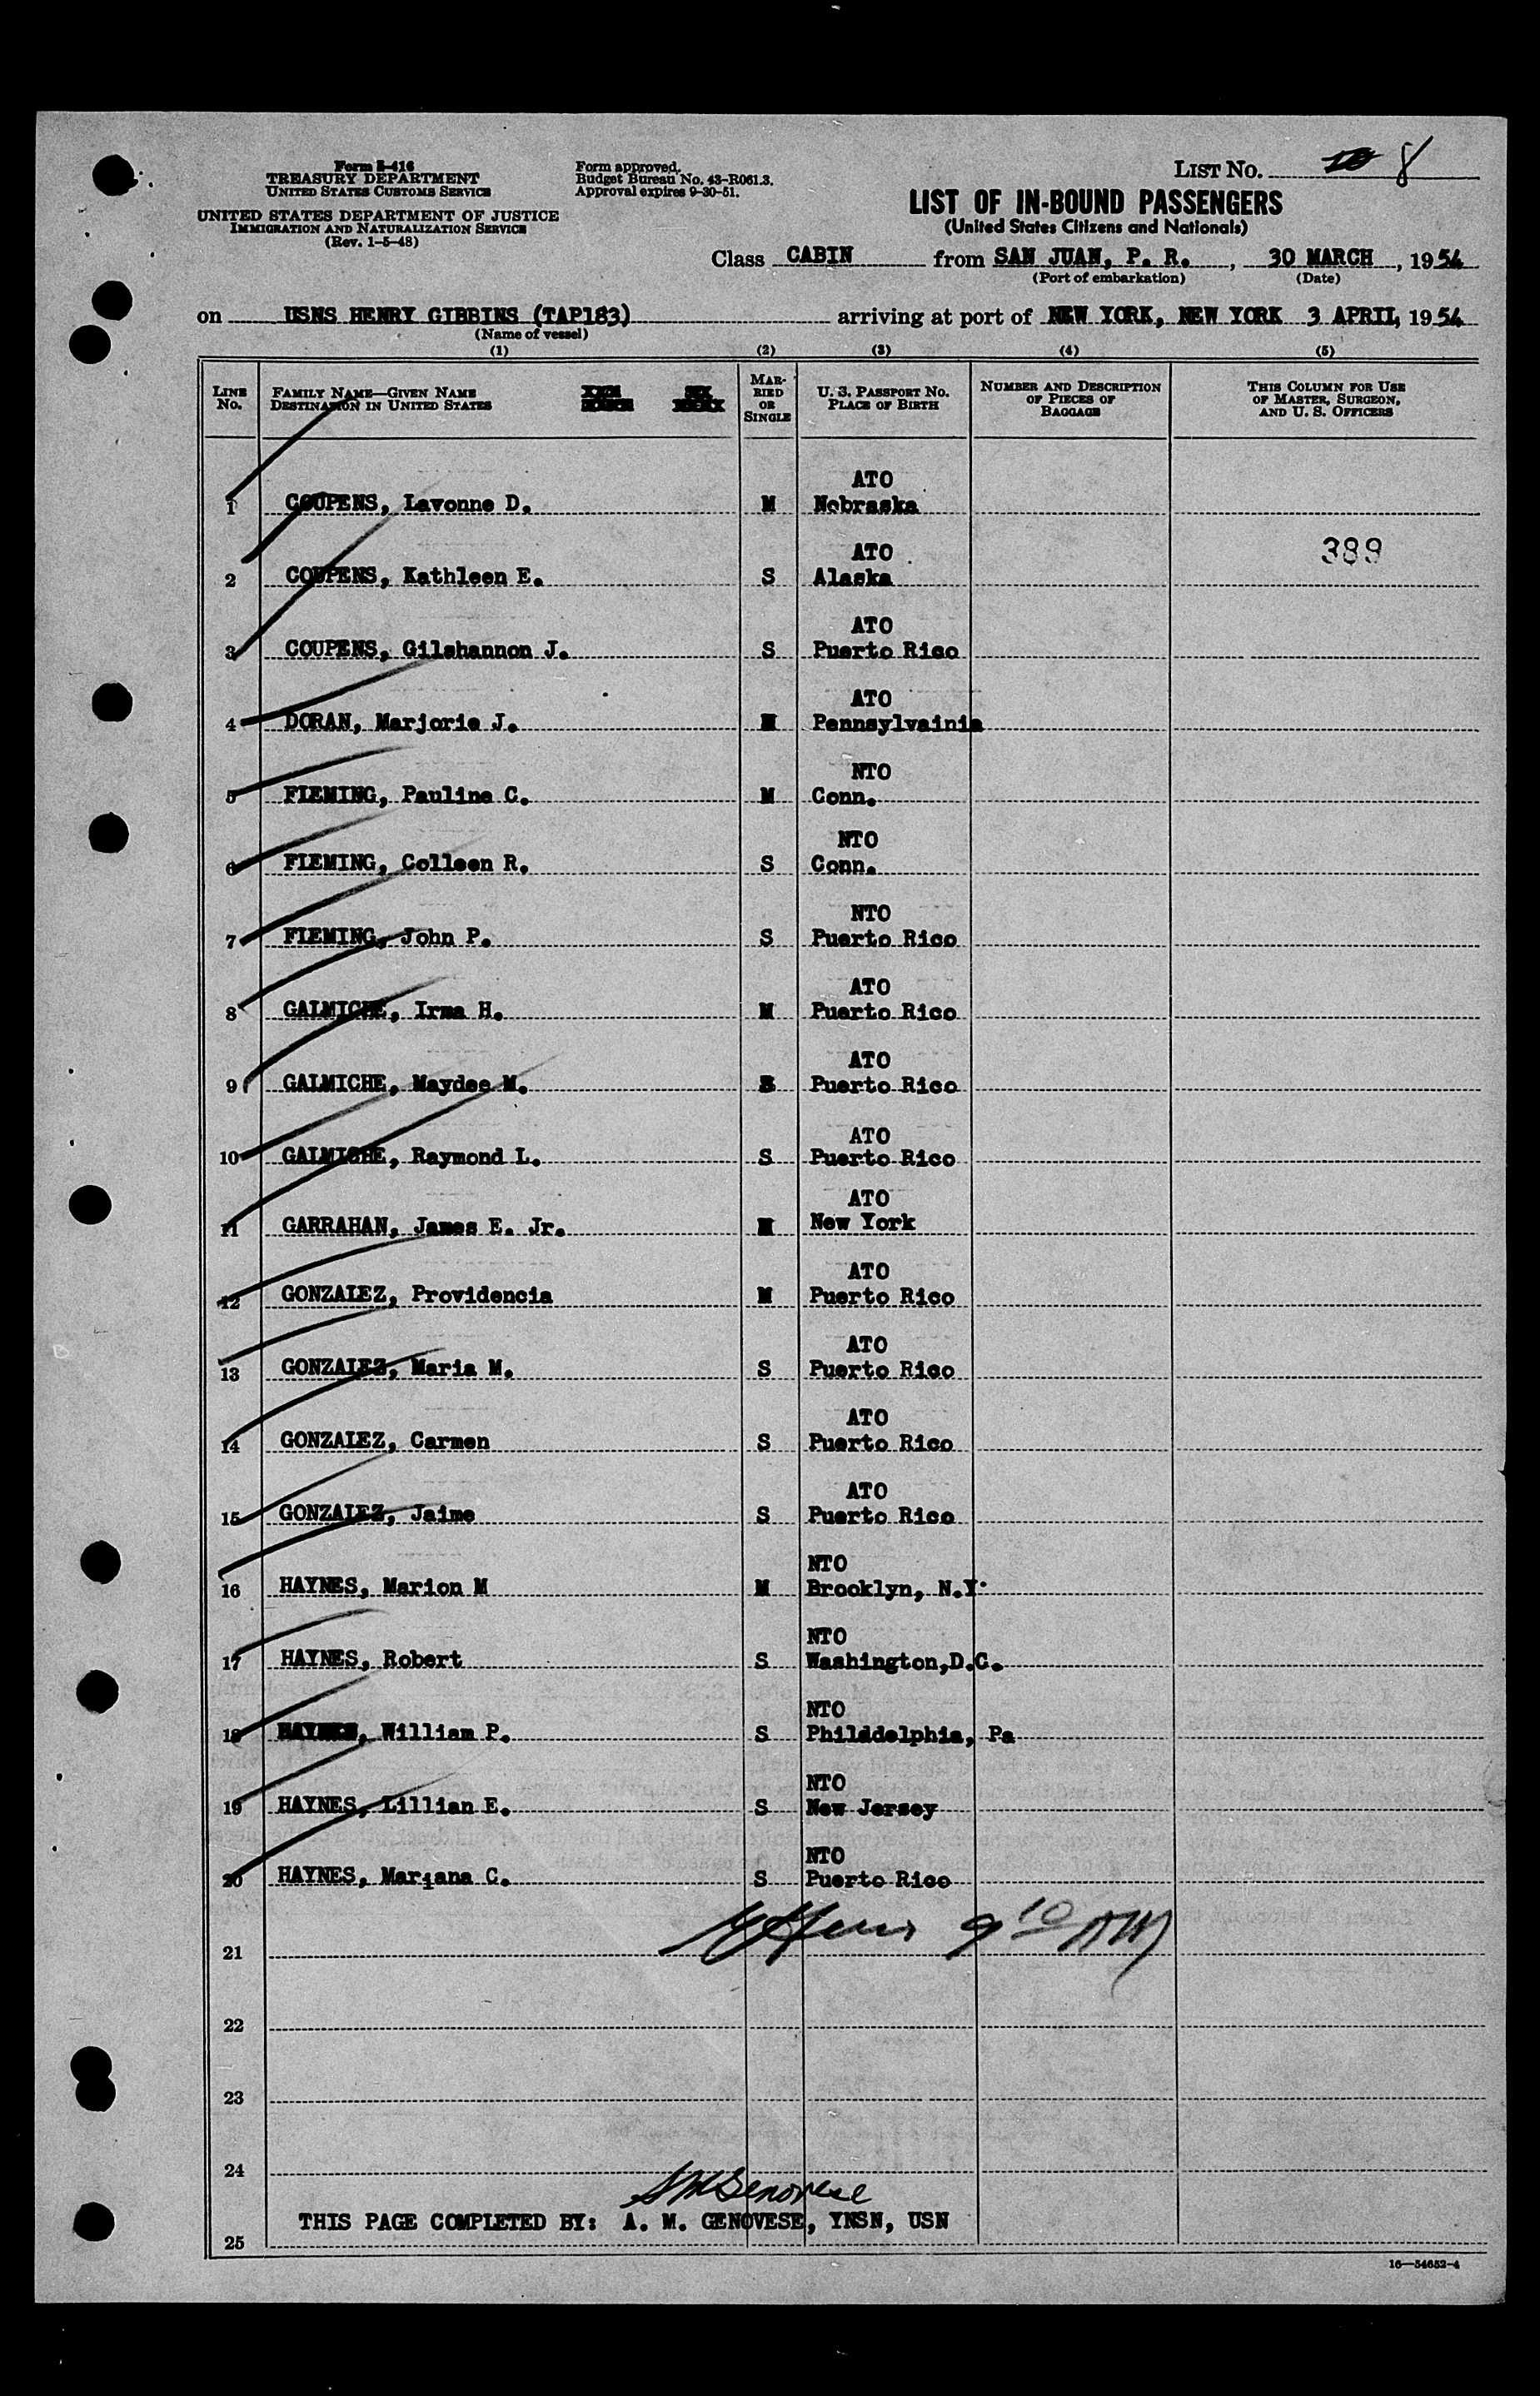 Form I-416
TREASURY DEPARTMENT
UNITED STATES CUSTOMS SERVICE
UNITED STATES DEPARTMENT OF JUSTICE
IMMIGRATION AND NATURALIZATION SERVICE
(Rev. 1-5-48)
Form approved.
Budget Bureau No. 43-R061.3.
Approval expires 9-30-51.
LIST NO. 8
LIST OF IN-BOUND PASSENGERS
(United States Citizens and Nationals)
Class CABIN from SAN JUAN, P. R., 30 MARCH, 1954
(Port of embarkation) (Date)
on USNS HENRY GIBBINS (TAP183) arriving at port of NEW YORK, NEW YORK 3 APRIL, 1954
(Name of vessel)
(1) (2) (3) (4) (5)
LINE NO.
FAMILY NAME—GIVEN NAME
DESTINATION IN UNITED STATES
MARRIED OR SINGLE
U. S. PASSPORT NO.
PLACE OF BIRTH
NUMBER AND DESCRIPTION OF PIECES OF BAGGAGE
THIS COLUMN FOR USE OF MASTER, SURGEON, AND U. S. OFFICERS
ATO
1 COUPENS, Lavonne D. M Nebraska
389
ATO
2 COUPENS, Kathleen E. S Alaska
ATO
3 COUPENS, Gilshannon J. S Puerto Rico
ATO
4 DORAN, Marjorie J. M Pennsylvainia
NTO
5 FLEMING, Pauline C. M Conn.
NTO
6 FLEMING, Colleen R. S Conn.
NTO
7 FLEMING, John P. S Puerto Rico
ATO
8 GALMICHE, Irma H. M Puerto Rico
ATO
9 GALMICHE, Maydee M. S Puerto Rico
ATO
10 GALMICHE, Raymond L. S Puerto Rico
ATO
11 GARRAHAN, James E. Jr. M New York
ATO
12 GONZALEZ, Providencia M Puerto Rico
ATO
13 GONZALEZ, Maria M. S Puerto Rico
ATO
14 GONZALEZ, Carmen S Puerto Rico
ATO
15 GONZALEZ, Jaime S Puerto Rico
NTO
16 HAYNES, Marion M M Brooklyn, N.Y.
NTO
17 HAYNES, Robert S Washington,D.C.
NTO
18 HAYNES, William P. S Philddelphia, Pa
NTO
19 HAYNES, Lillian E. S New Jersey
NTO
20 HAYNES, Mariana C. S Puerto Rico
9 10 AM
21
22
23
24
A M Genovese
THIS PAGE COMPLETED BY: A. M. GENOVESE, YNSN, USN
25
16—54652-4